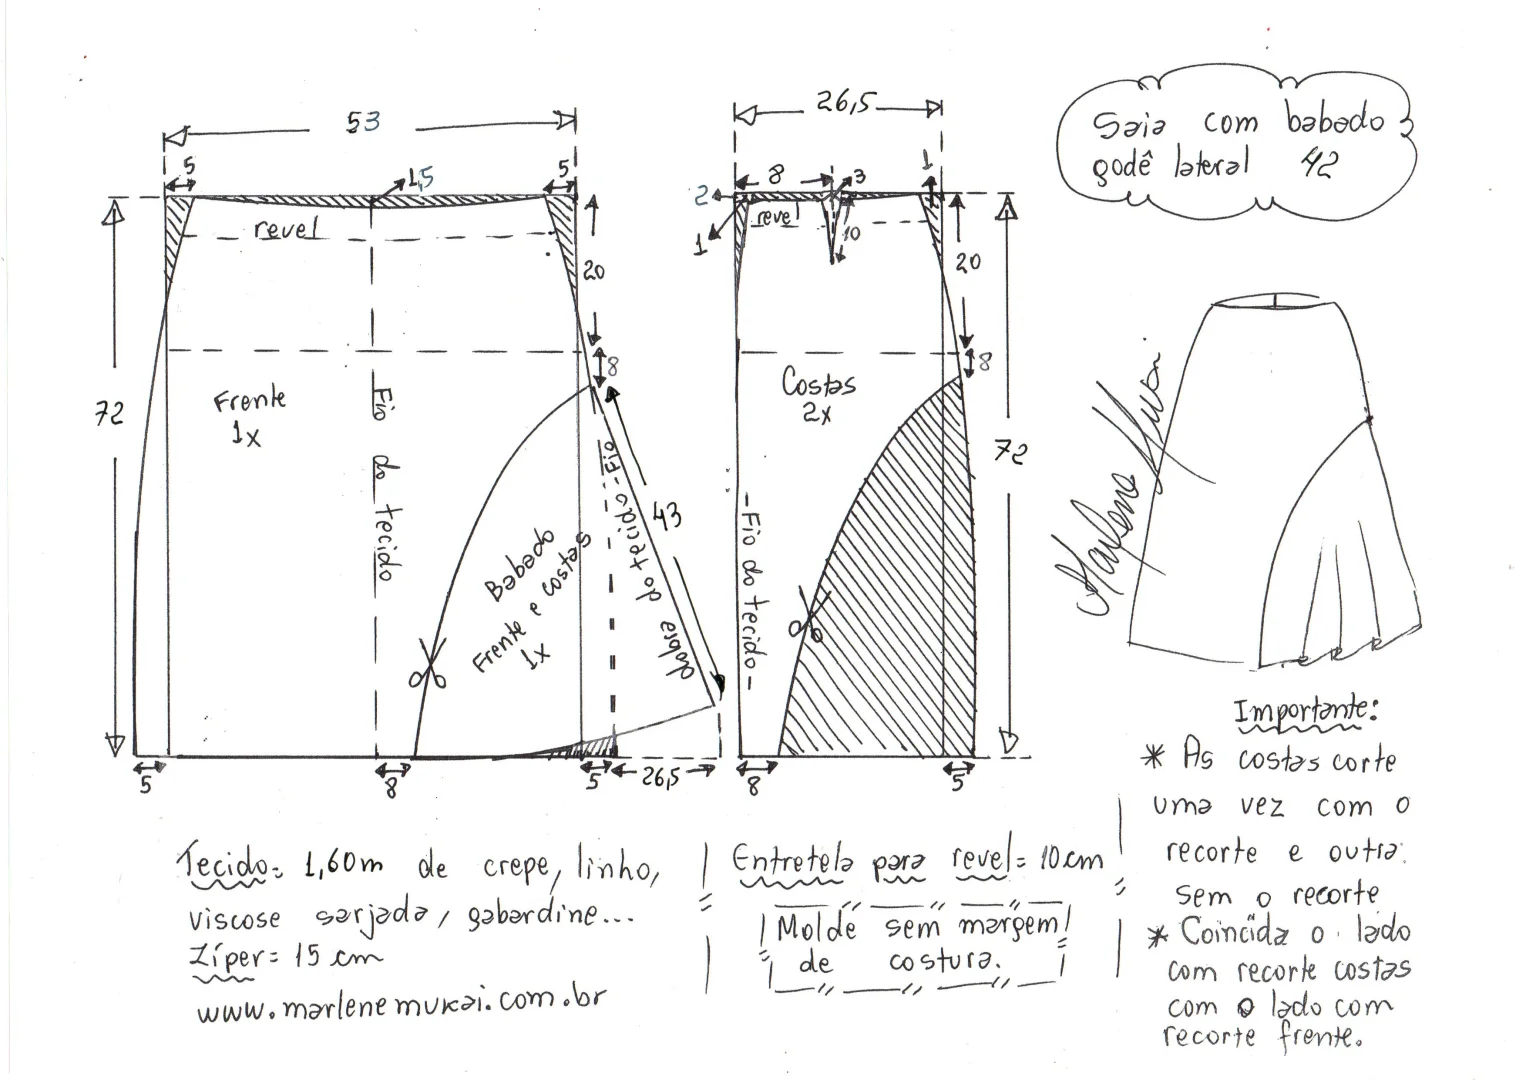 Saia com babado
godê lateral 42
53
26,5
5
1,5
5
revel
20
8
72
Frente
1x
Fio do tecido
43
Fio do tecido
dobra
Babado
Frente e costas
1x
5
8
5
26,5
8
3
1
2
1
revel
10
20
8
Costas
2x
72
Fio do tecido
8
5
Marlene Mukai
Importante:
* As costas corte
uma vez com o
recorte e outra
sem o recorte
* Coincida o lado
com recorte costas
com o lado com
recorte frente.
Tecido= 1,60m de crepe, linho,
viscose sarjada, gabardine...
Zíper= 15 cm
www.marlenemukai.com.br
Entretela para revel= 10 cm
Molde sem margem
de costura.